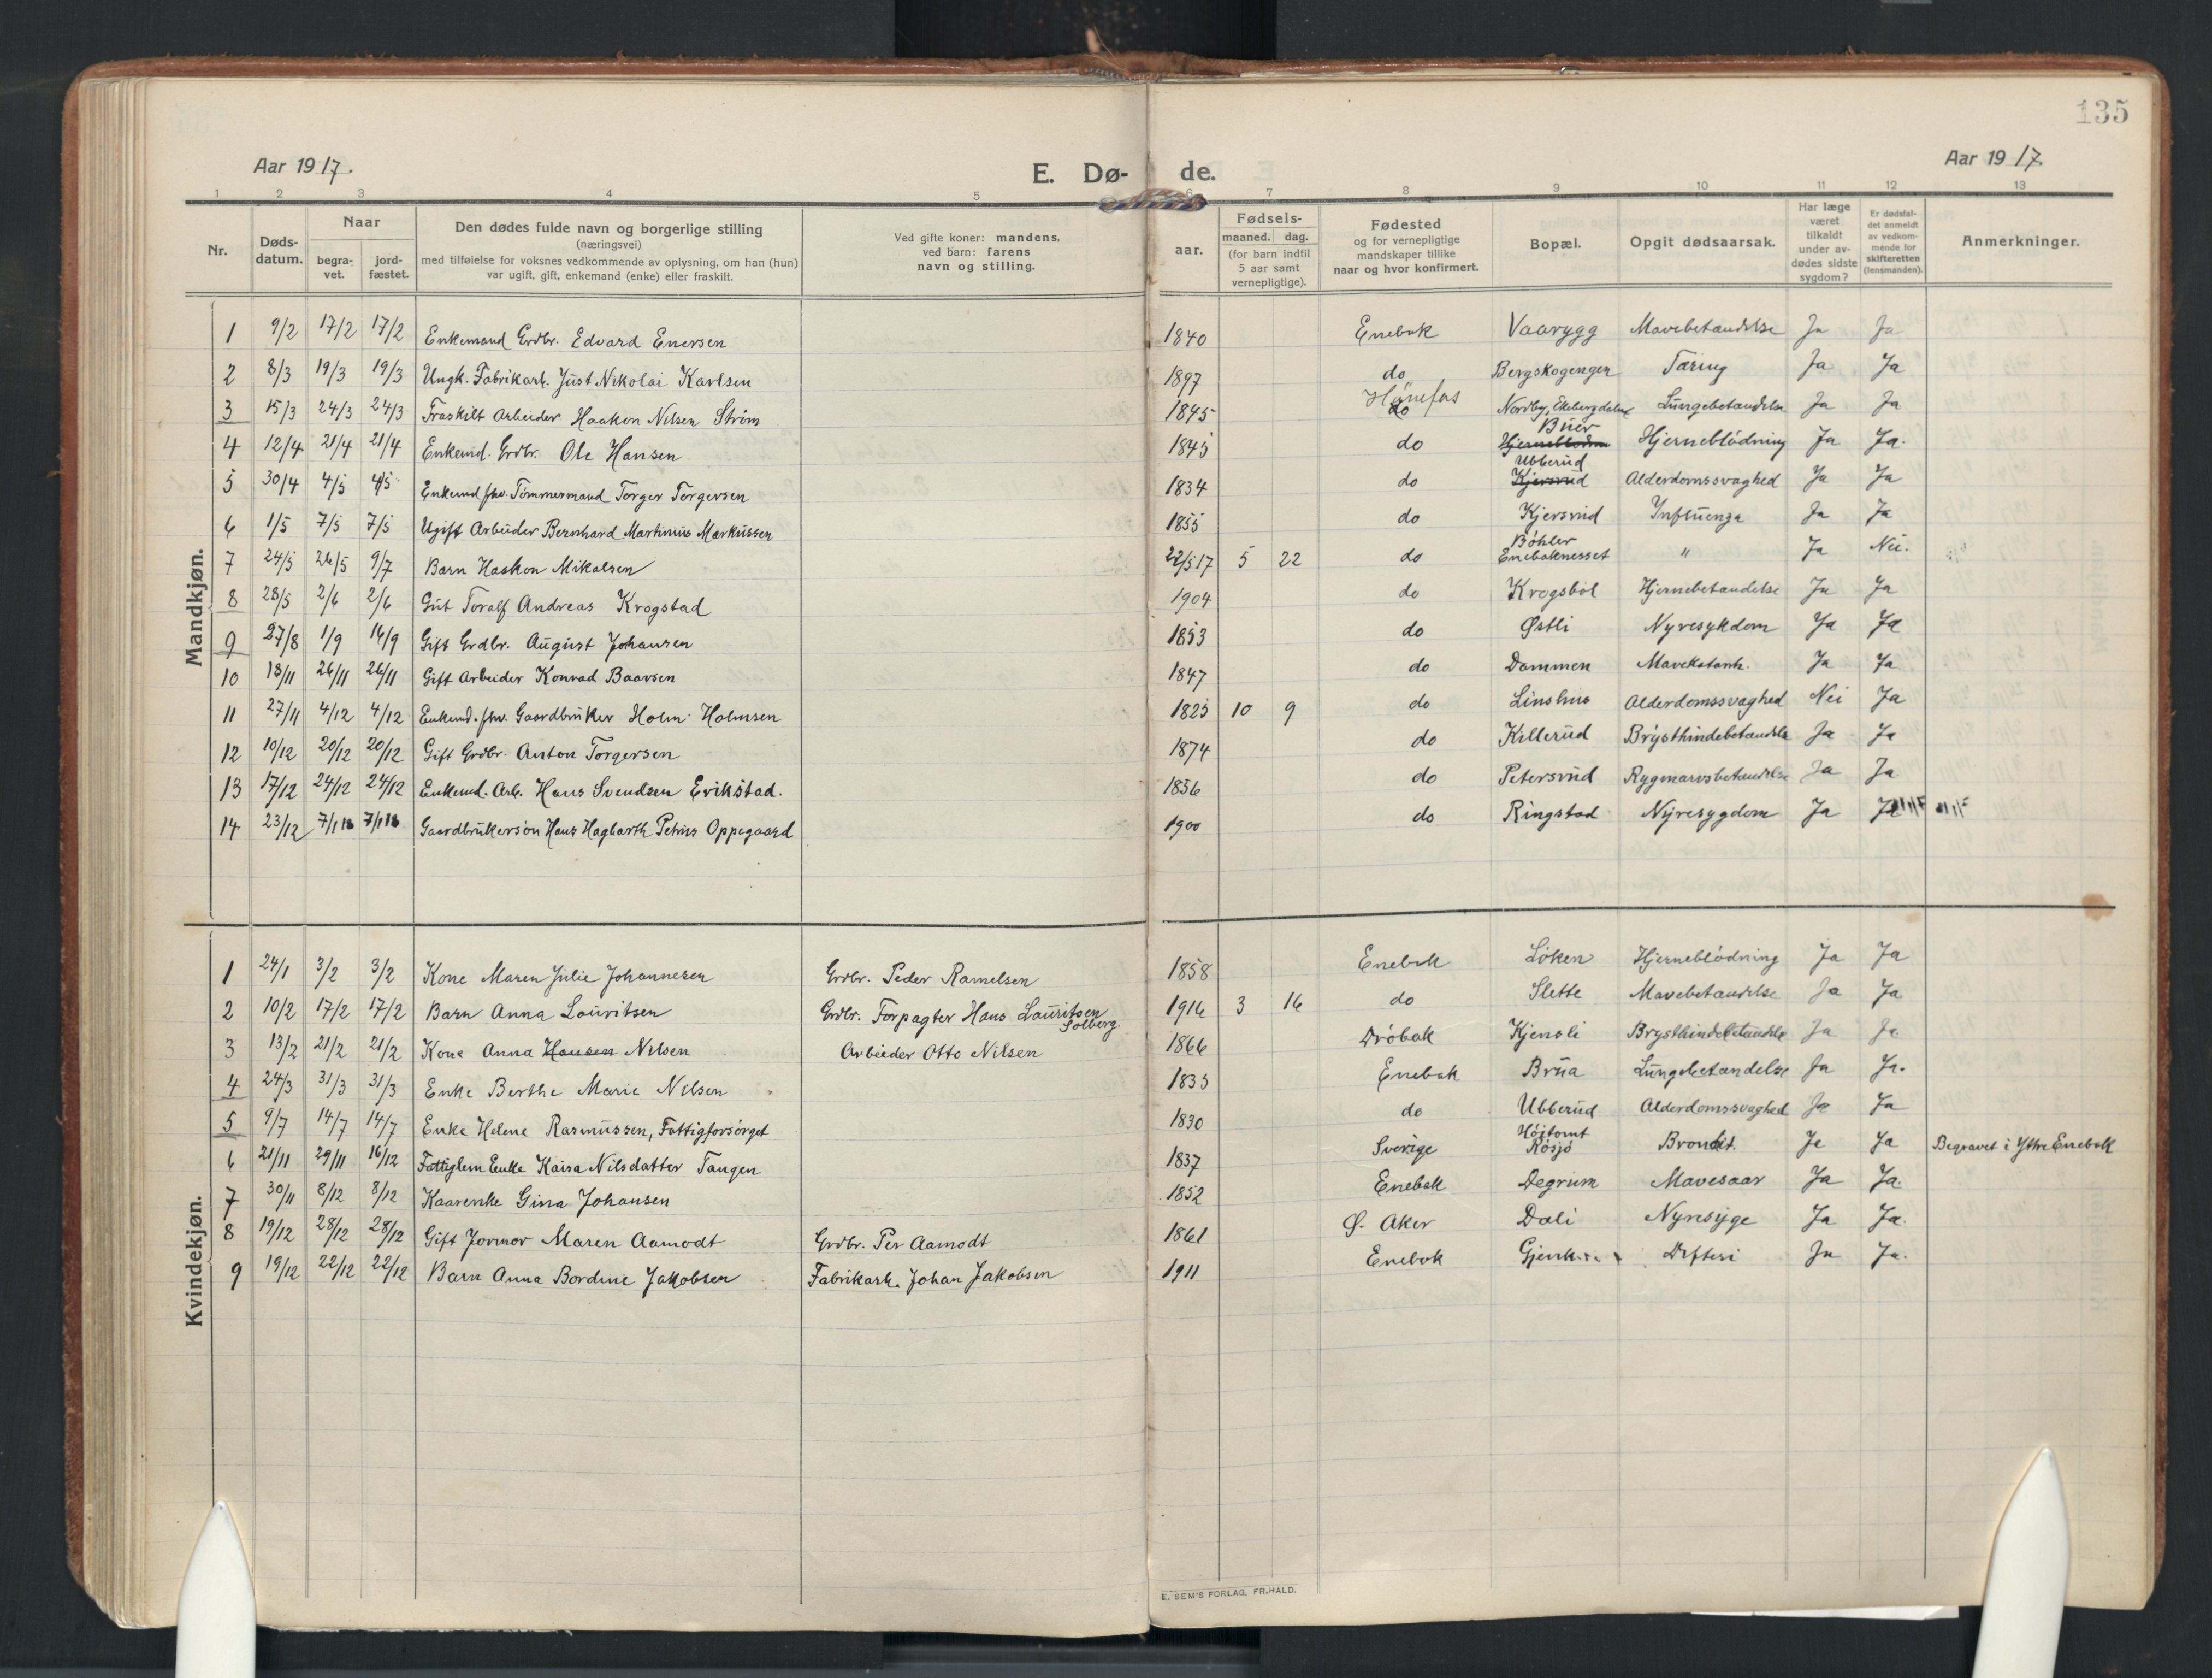 135
Aar 1917.
E. Dø-
de.
Aar 1917.
1 2 3 4 5 6 7 8 9 10 11 12 13
Nr.
Døds-
datum.
Naar
begra-
vet.
jord-
fæstet.
Den dødes fulde navn og borgerlige stilling
(næringsvei)
med tilføielse for voksnes vedkommende av oplysning, om han (hun)
var ugift, gift, enkemand (enke) eller fraskilt.
Ved gifte koner: mandens,
ved barn: farens
navn og stilling.
aar.
Fødsels-
maaned. dag.
(for barn indtil
5 aar samt
vernepligtige).
Fødested
og for vernepligtige
mandskaper tillike
naar og hvor konfirmert.
Bopæl.
Opgit dødsaarsak.
Har læge
været
tilkaldt
under av-
dødes sidste
sygdom?
Er dødsfal-
det anmeldt
av vedkom-
mende for
skifteretten
(lensmanden).
Anmerkninger.
Mandkjøn.
1 9/2 17/2 17/2 Enkemand Grdbr. Edvard Enersen 1840 Enebak Vaarygg Mavebetændelse Ja Ja
2 8/3 19/3 19/3 Ungk. Fabrikarb. Just Nikolai Karlsen 1897 do Bergskogengen Tæring Ja Ja
3 15/3 24/3 24/3 Fraskilt Arbeider Haakon Nilsen Strøm 1845 do Hønefos Nordby, Ekebergdalen Lungebetændelse Ja Ja
4 12/4 21/4 21/4 Enkemd. Grdbr. Ole Hansen 1845 do Hjerneblødn Buer Hjerneblødning Ja Ja.
5 30/4 4/5 4/5 Enkemd fhv. Tømmermand Torger Torgersen 1834 do Kjersrud Ubberud Alderdomssvaghed Ja Ja
6 1/5 7/5 7/5 Ugift Arbeider Bernhard Martinius Markussen 1855 do Kjersrud Influenza Ja Ja
7 24/5 26/5 9/7 Barn Haakon Mikalsen 22/5 17 5 22 do Bøhler Enebaknesset " Ja Nei.
8 28/5 2/6 2/6 Gut Toralf Andreas Krogstad 1904 do Krogsbøl Hjernebetændelse Ja Ja
9 27/8 1/9 16/9 Gift Grdbr. August Johansen 1853 do Østli Nyresykdom Ja Ja
10 18/11 26/11 26/11 Gift Arbeider Konrad Baarsen 1847 do Dammen Mavekatarrh. Ja Ja
11 27/11 4/12 4/12 Enkemd. fhv. Gaardbruker Holm Holmsen 1825 10 9 do Linshus Alderdomssvaghed Nei Ja
12 10/12 20/12 20/12 Gift Grdbr. Anton Torgersen 1874 do Killerud Brysthindebetændelse Ja Ja
13 17/12 24/12 24/12 Enkemd. Arb. Hans Svendsen Erikstad. 1856 do Petersrud Rygmarvsbetændelse Ja Ja
14 23/12 7/1 18 7/1 18 Gaardbrukersøn Hans Hagbarth Petrus Oppegaard 1900 do Ringstad Nyresygdom Ja Ja
Kvindekjøn.
1 24/1 3/2 3/2 Kone Maren Julie Johannesen Grdbr. Peder Ramelsen 1858 Enebak Løken Hjerneblødning Ja Ja
2 10/2 17/2 17/2 Barn Anna Lauritsen Grdbr. Forpagter Hans Lauritsen Solberg 1916 3 16 do Slette Mavebetændelse Ja Ja
3 13/2 21/2 21/2 Kone Anna Hansen Nilsen Arbeider Otto Nilsen 1866 Drøbak Kjensli Brysthindebetændelse Ja Ja
4 24/3 31/3 31/3 Enke Berthe Marie Nilsen 1835 Enebak Brua Lungebetændelse Ja Ja.
5 9/7 14/7 14/7 Enke Helene Rasmussen, Fattigforsørget 1830 do Ubberud Alderdomssvaghed Ja Ja
6 21/11 29/11 16/12 Fattiglem Enke Kaisa Nilsdatter Tangen 1837 Sverige Høitomt Røsjø Bronkit. Ja Ja Begravet i Ytre Enebak
7 30/11 8/12 8/12 Kaarenke Gina Johansen 1852 Enebak Degrum Mavesaar Ja Ja
8 19/12 28/12 28/12 Gift Jormor Maren Aamodt Grdbr. Per Aamodt 1861 Ø. Aker Dali Nyresyge Ja Ja.
9 19/12 22/12 22/12 Barn Anna Bordine Jakobsen Fabrikarb. Johan Jakobsen 1911 Enebak Difteri Ja Ja.
E. SEM'S FORLAG, FR.HALD.